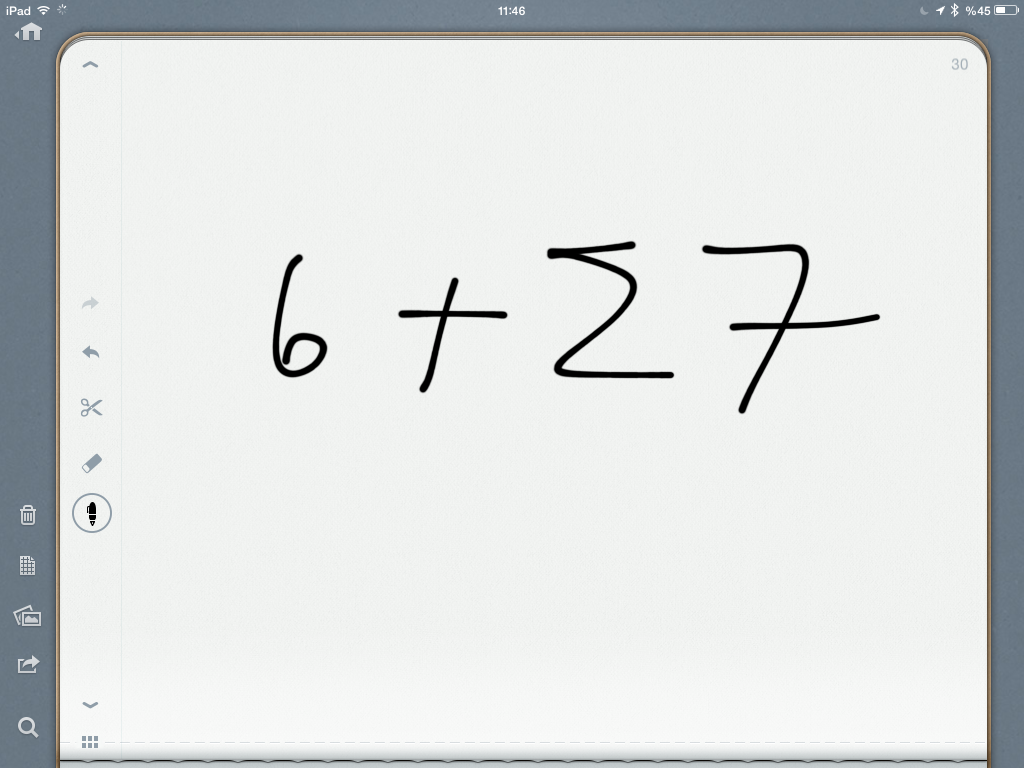 iPad 11:46 %45
30
6 + Σ 7